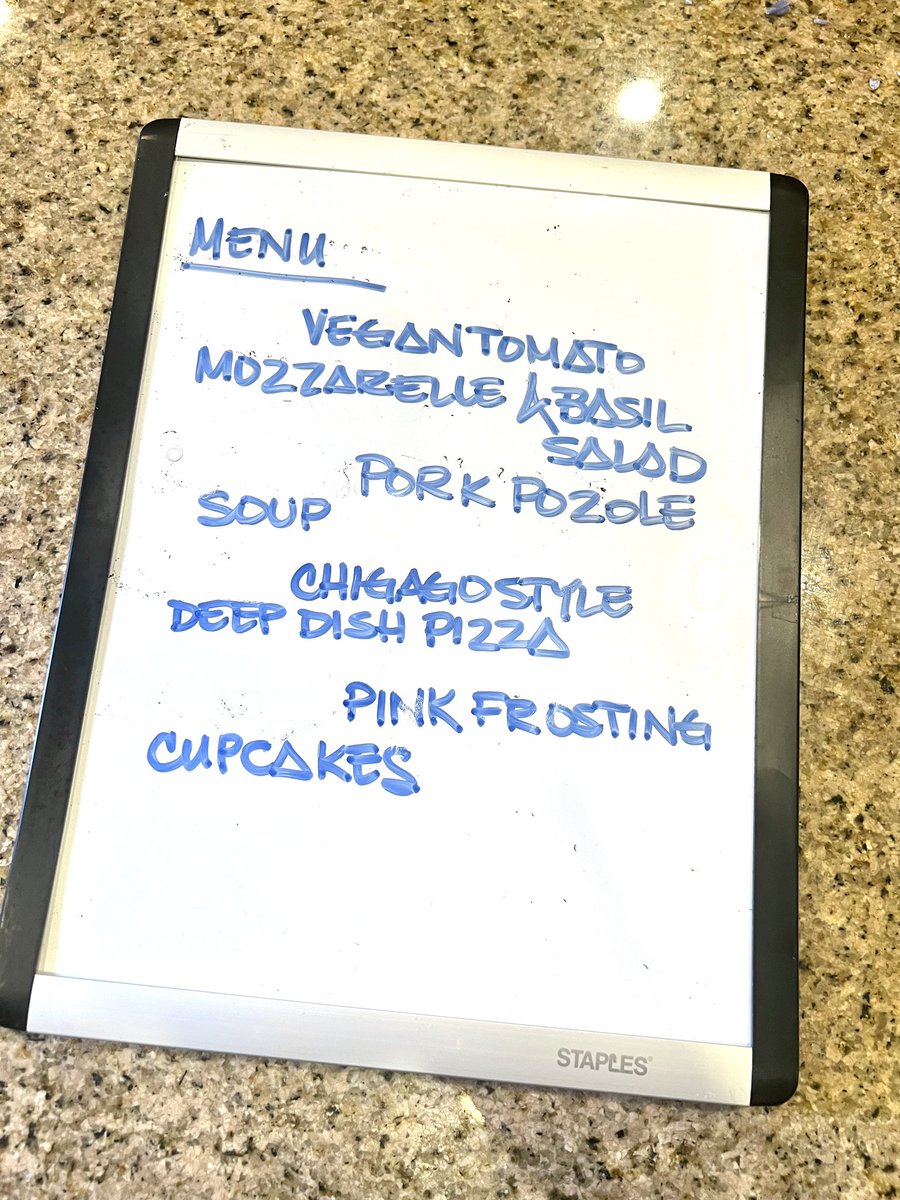 MENU
VEGAN TOMATO
MOZZARELLE & BASIL
SALAD
PORK POZOLE
SOUP
CHIGAGO STYLE
DEEP DISH PIZZA
PINK FROSTING
CUPCAKES
STAPLES®